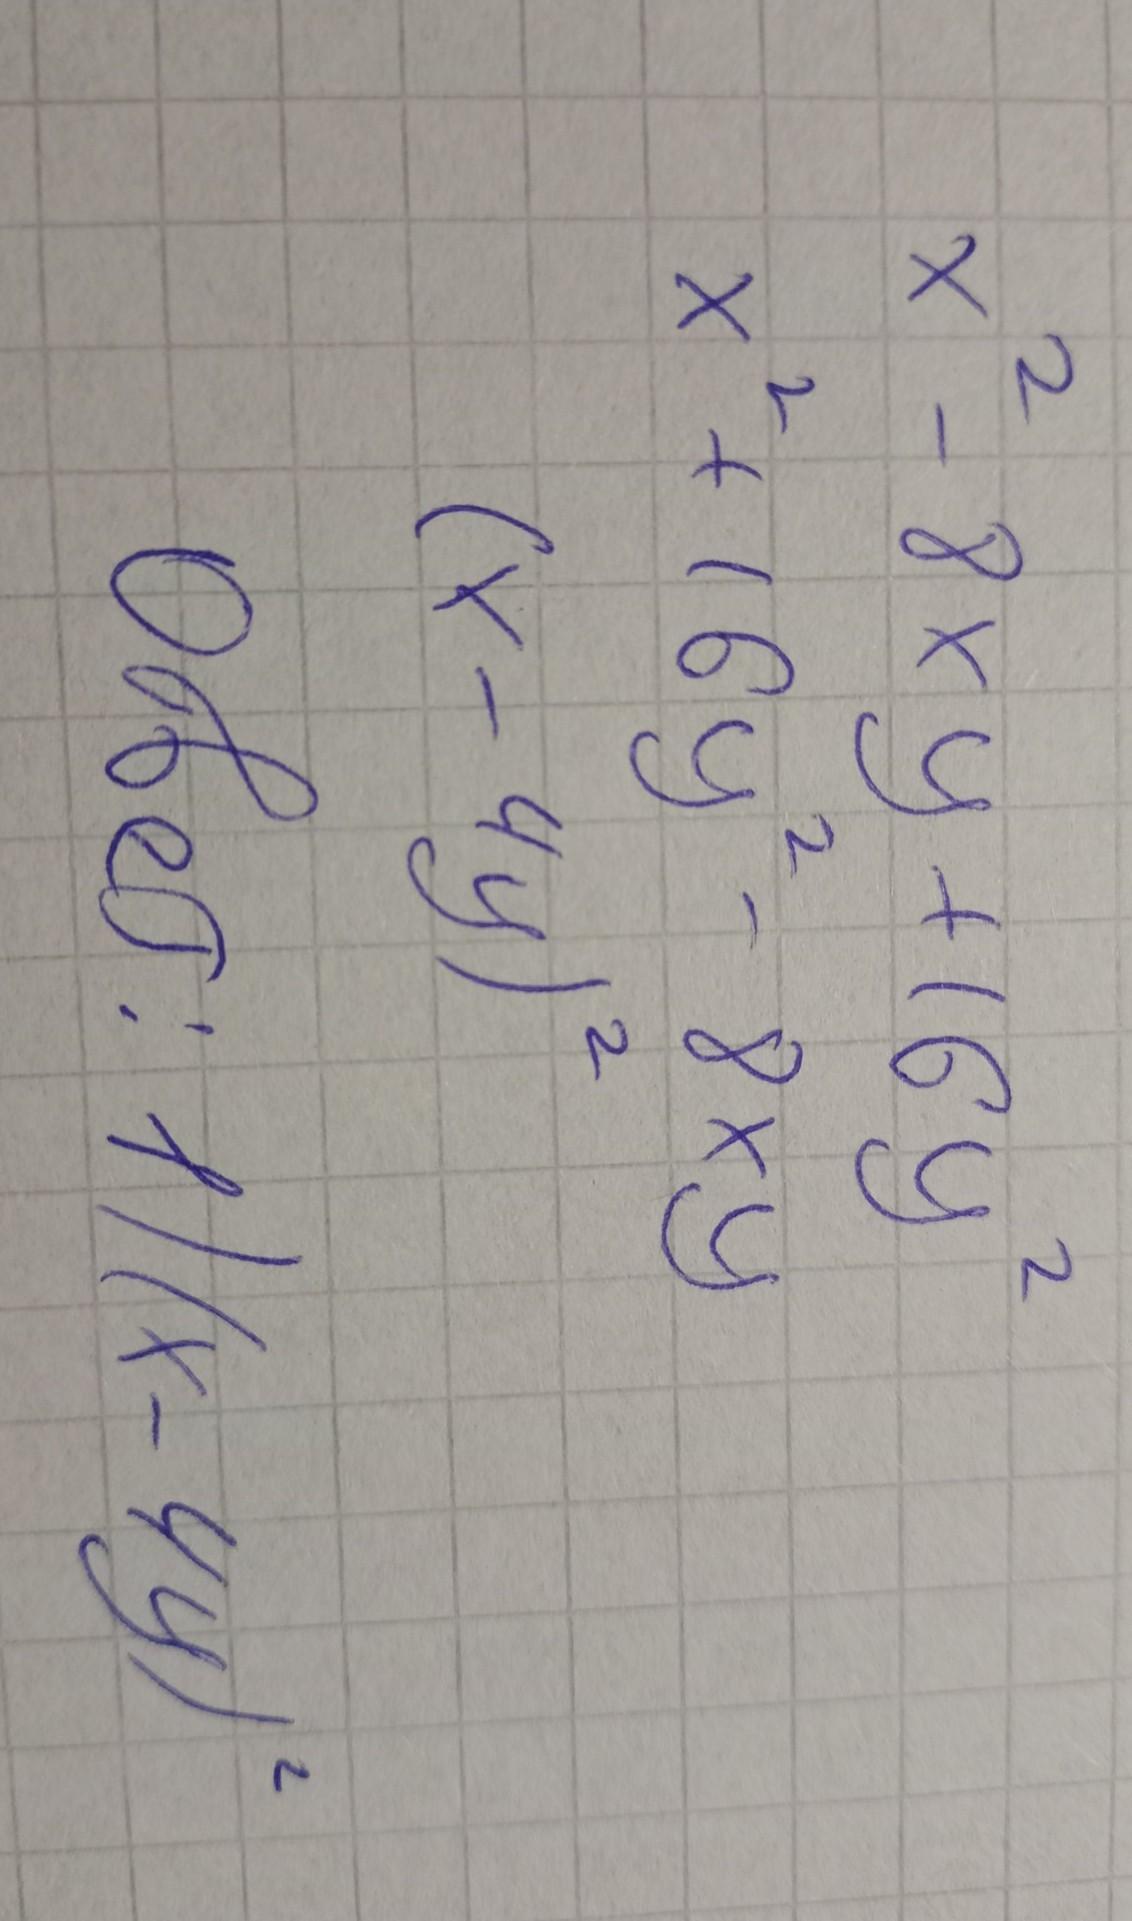 x² - 8xy + 16y²
x² + 16y² - 8xy
(x - 4y)²
Ответ: 1) (x - 4y)²